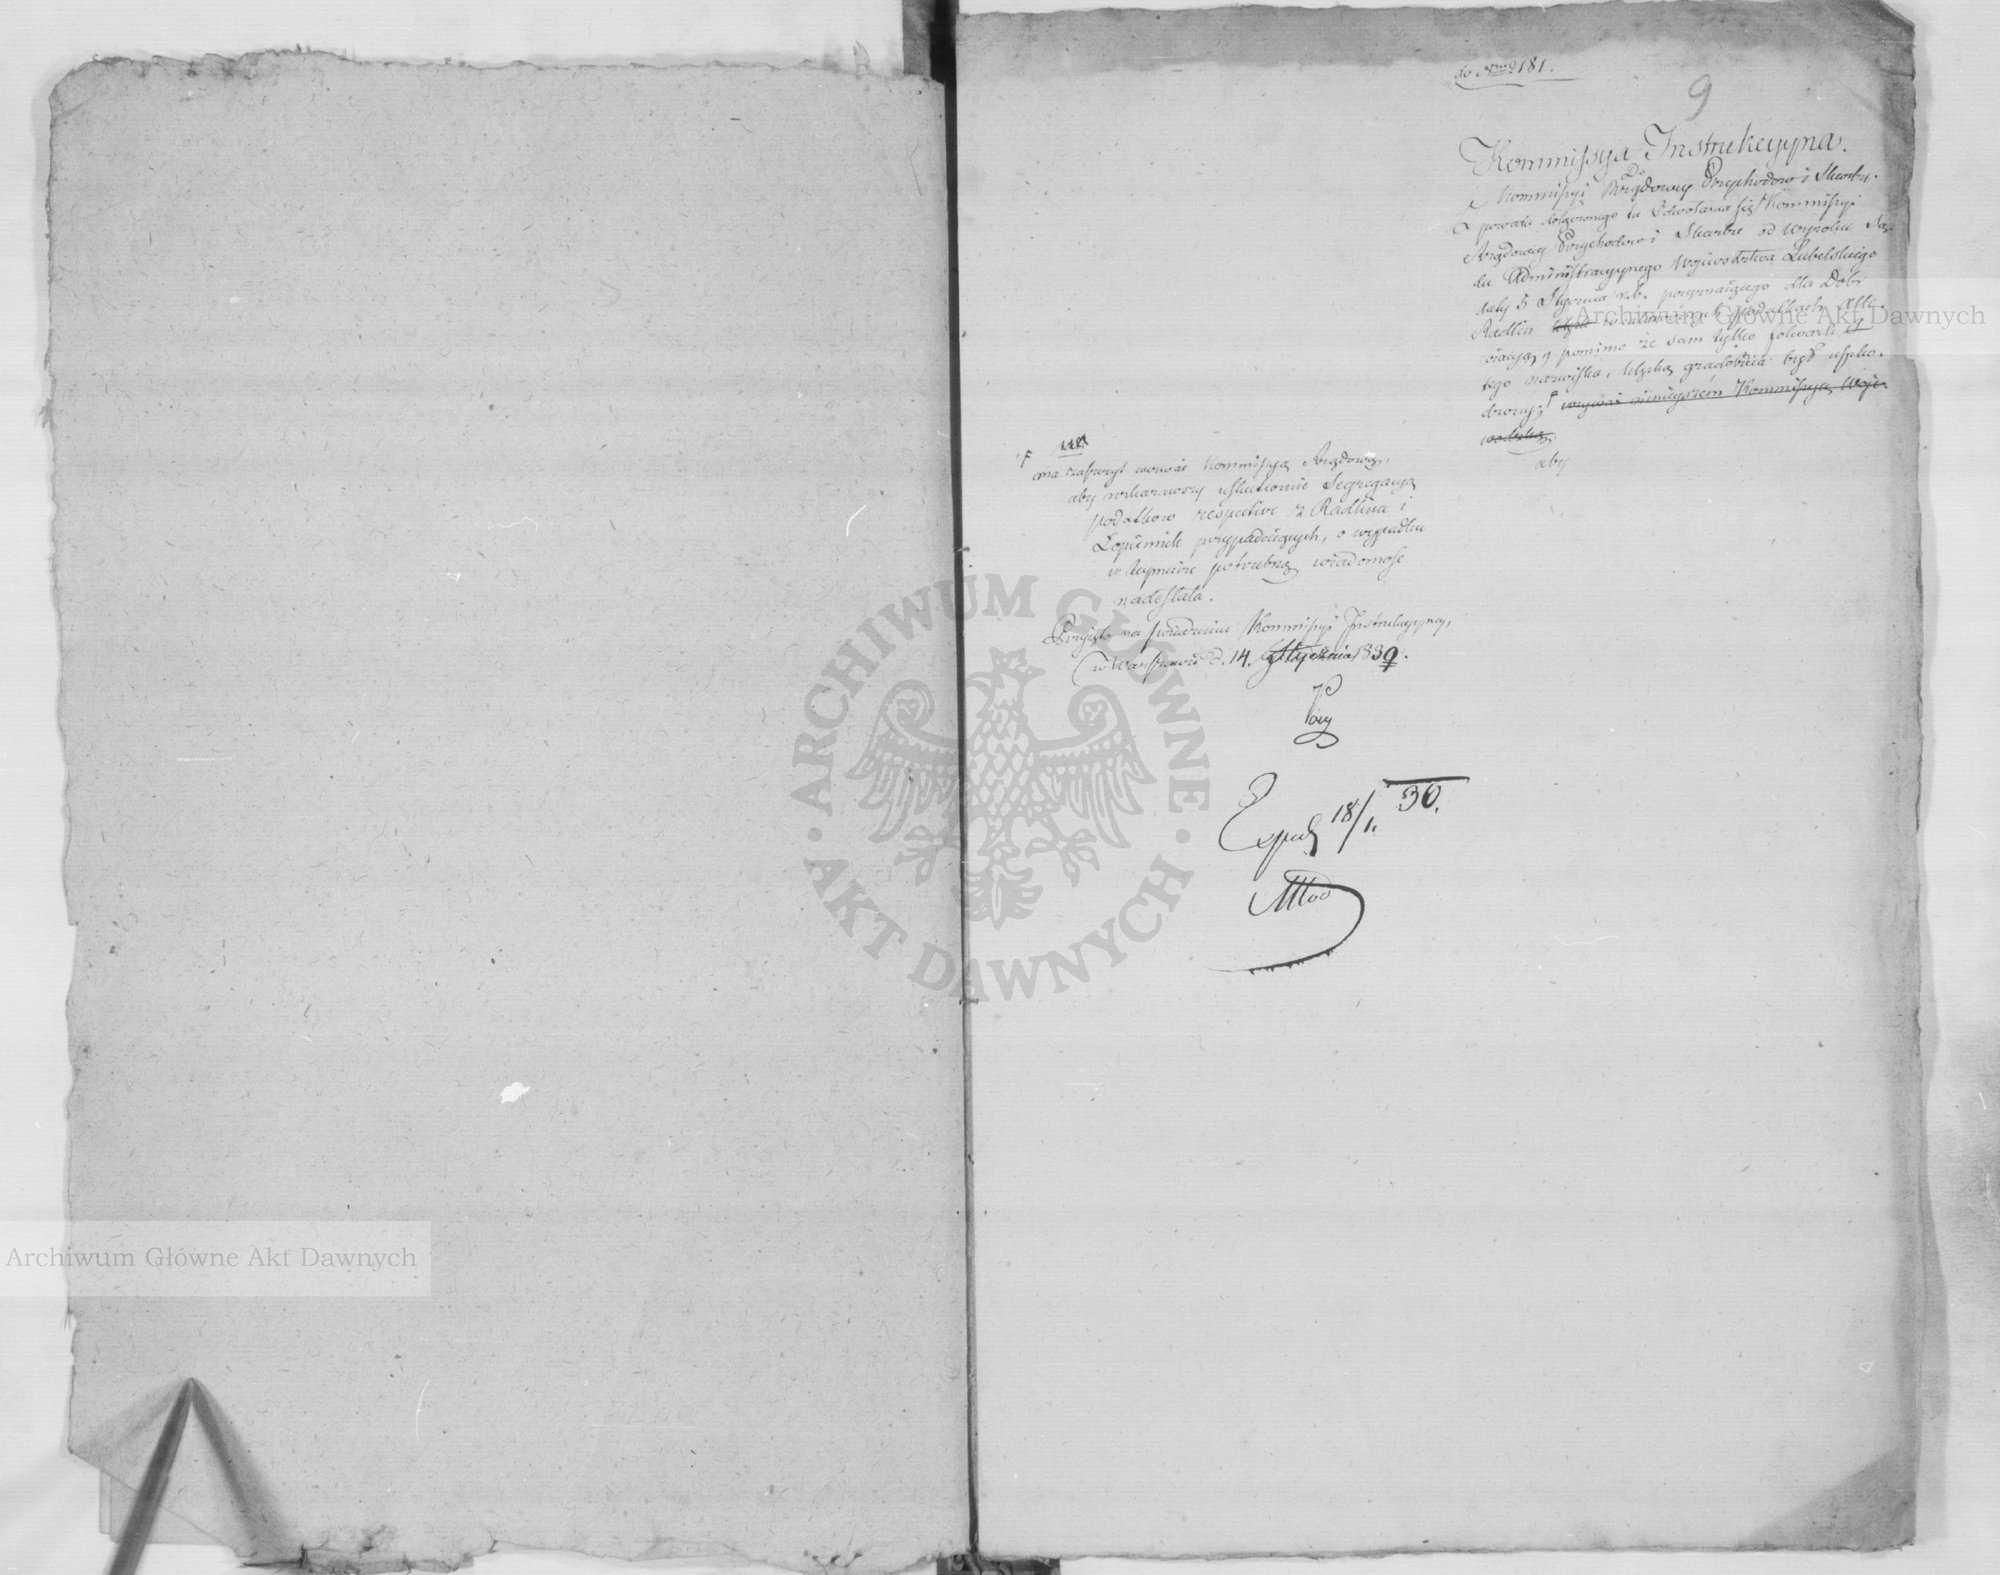 do Nru 181.
9
Kommissya Instrukcyyna.
Do
Kommissyi Rządowey Przychodów i Skarbu.
Z powodu dołączonego tu Odwołania się Kommissyi
Rządowey Przychodów i Skarbu od Wyroku Są-
du Administracyynego Województwa Lubelskiego
daty 5 Stycznia r. b. przyznaiącego dla Dóbr
Radlin podatkach
pomimo że sam tylko folwark
tego nazwiska, klęską gradobicia był uszko-
dzony; Kommissya Woje-
wódzka
aby
ma zaszczyt wezwać Kommissyą Rządową,
aby wykazawszy uskutecznić Segregacyą
podatków respective z Radlina i
Łopiennik przypadaiących, o wypadku
potrzebną wiadomość
nadesłała.
Przyięto na posiedzeniu Kommissyi Instrukcyyney,
w Warszawie d. 14. Stycznia 1830.
Exped 18/1. 30.
Archiwum Główne Akt Dawnych
Archiwum Główne Akt Dawnych
ARCHIWUM GŁÓWNE
AKT DAWNYCH